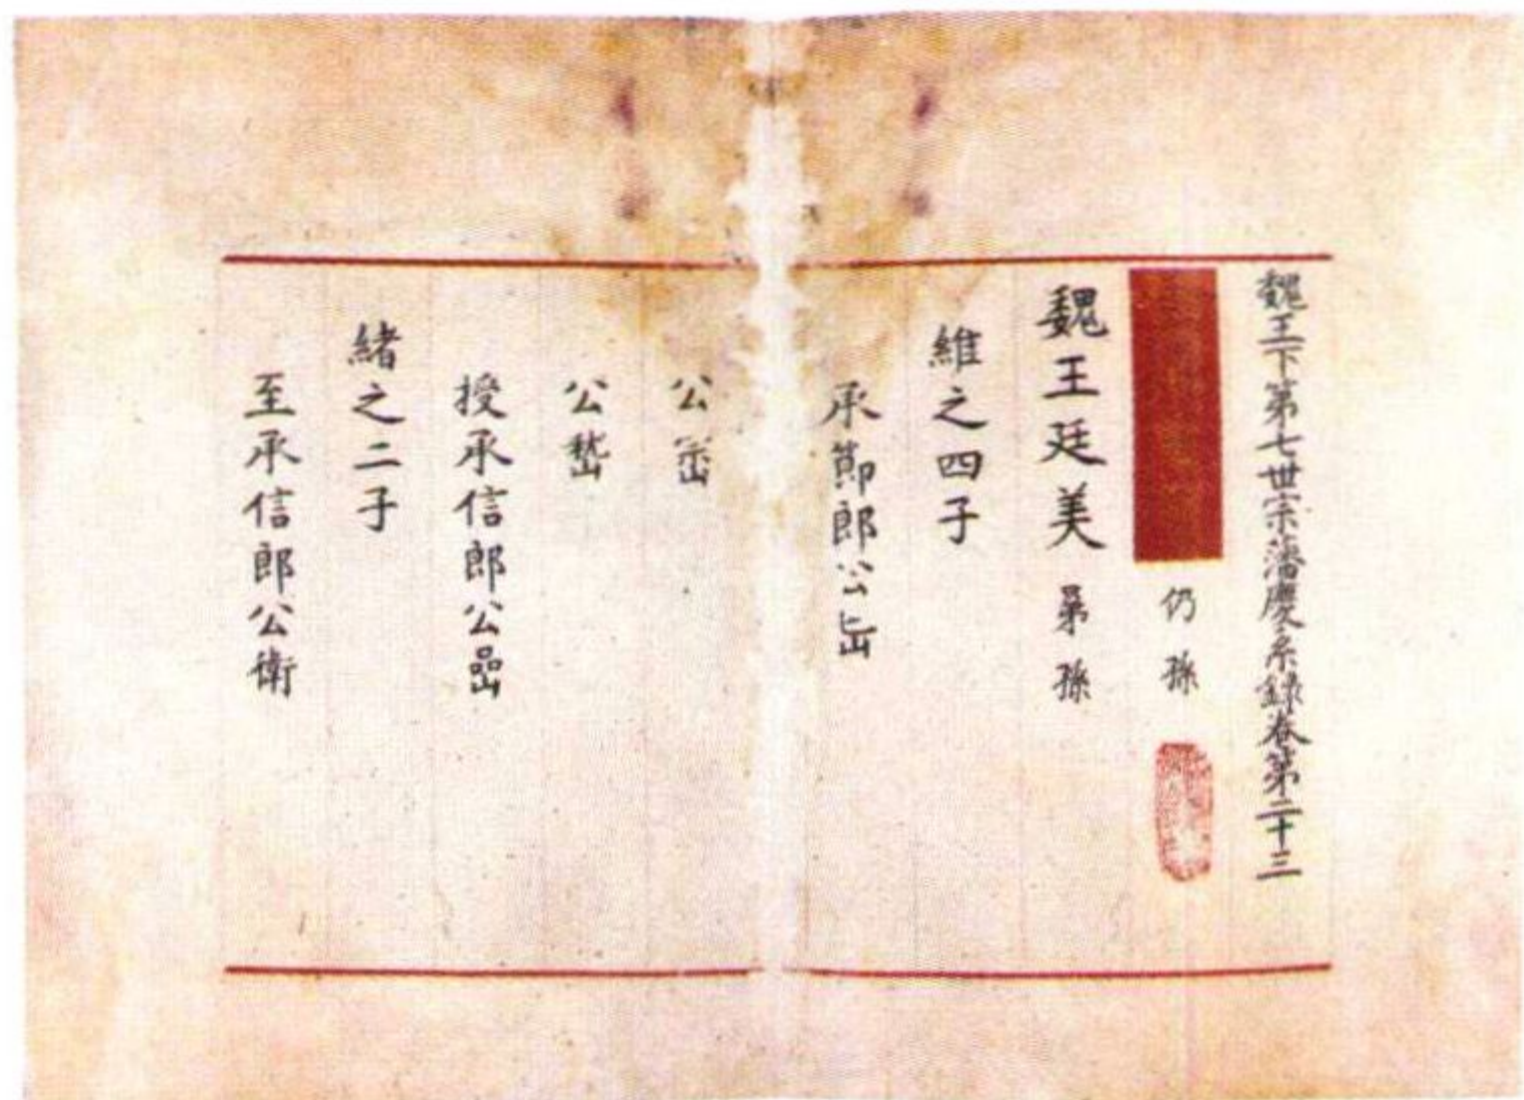 魏王下第七世宗藩慶系錄卷第二十三
仍孫
魏王廷美 弟孫
維之四子
承節郎公
公
公
授承信郎公嵒
緒之二子
至承信郎公衛